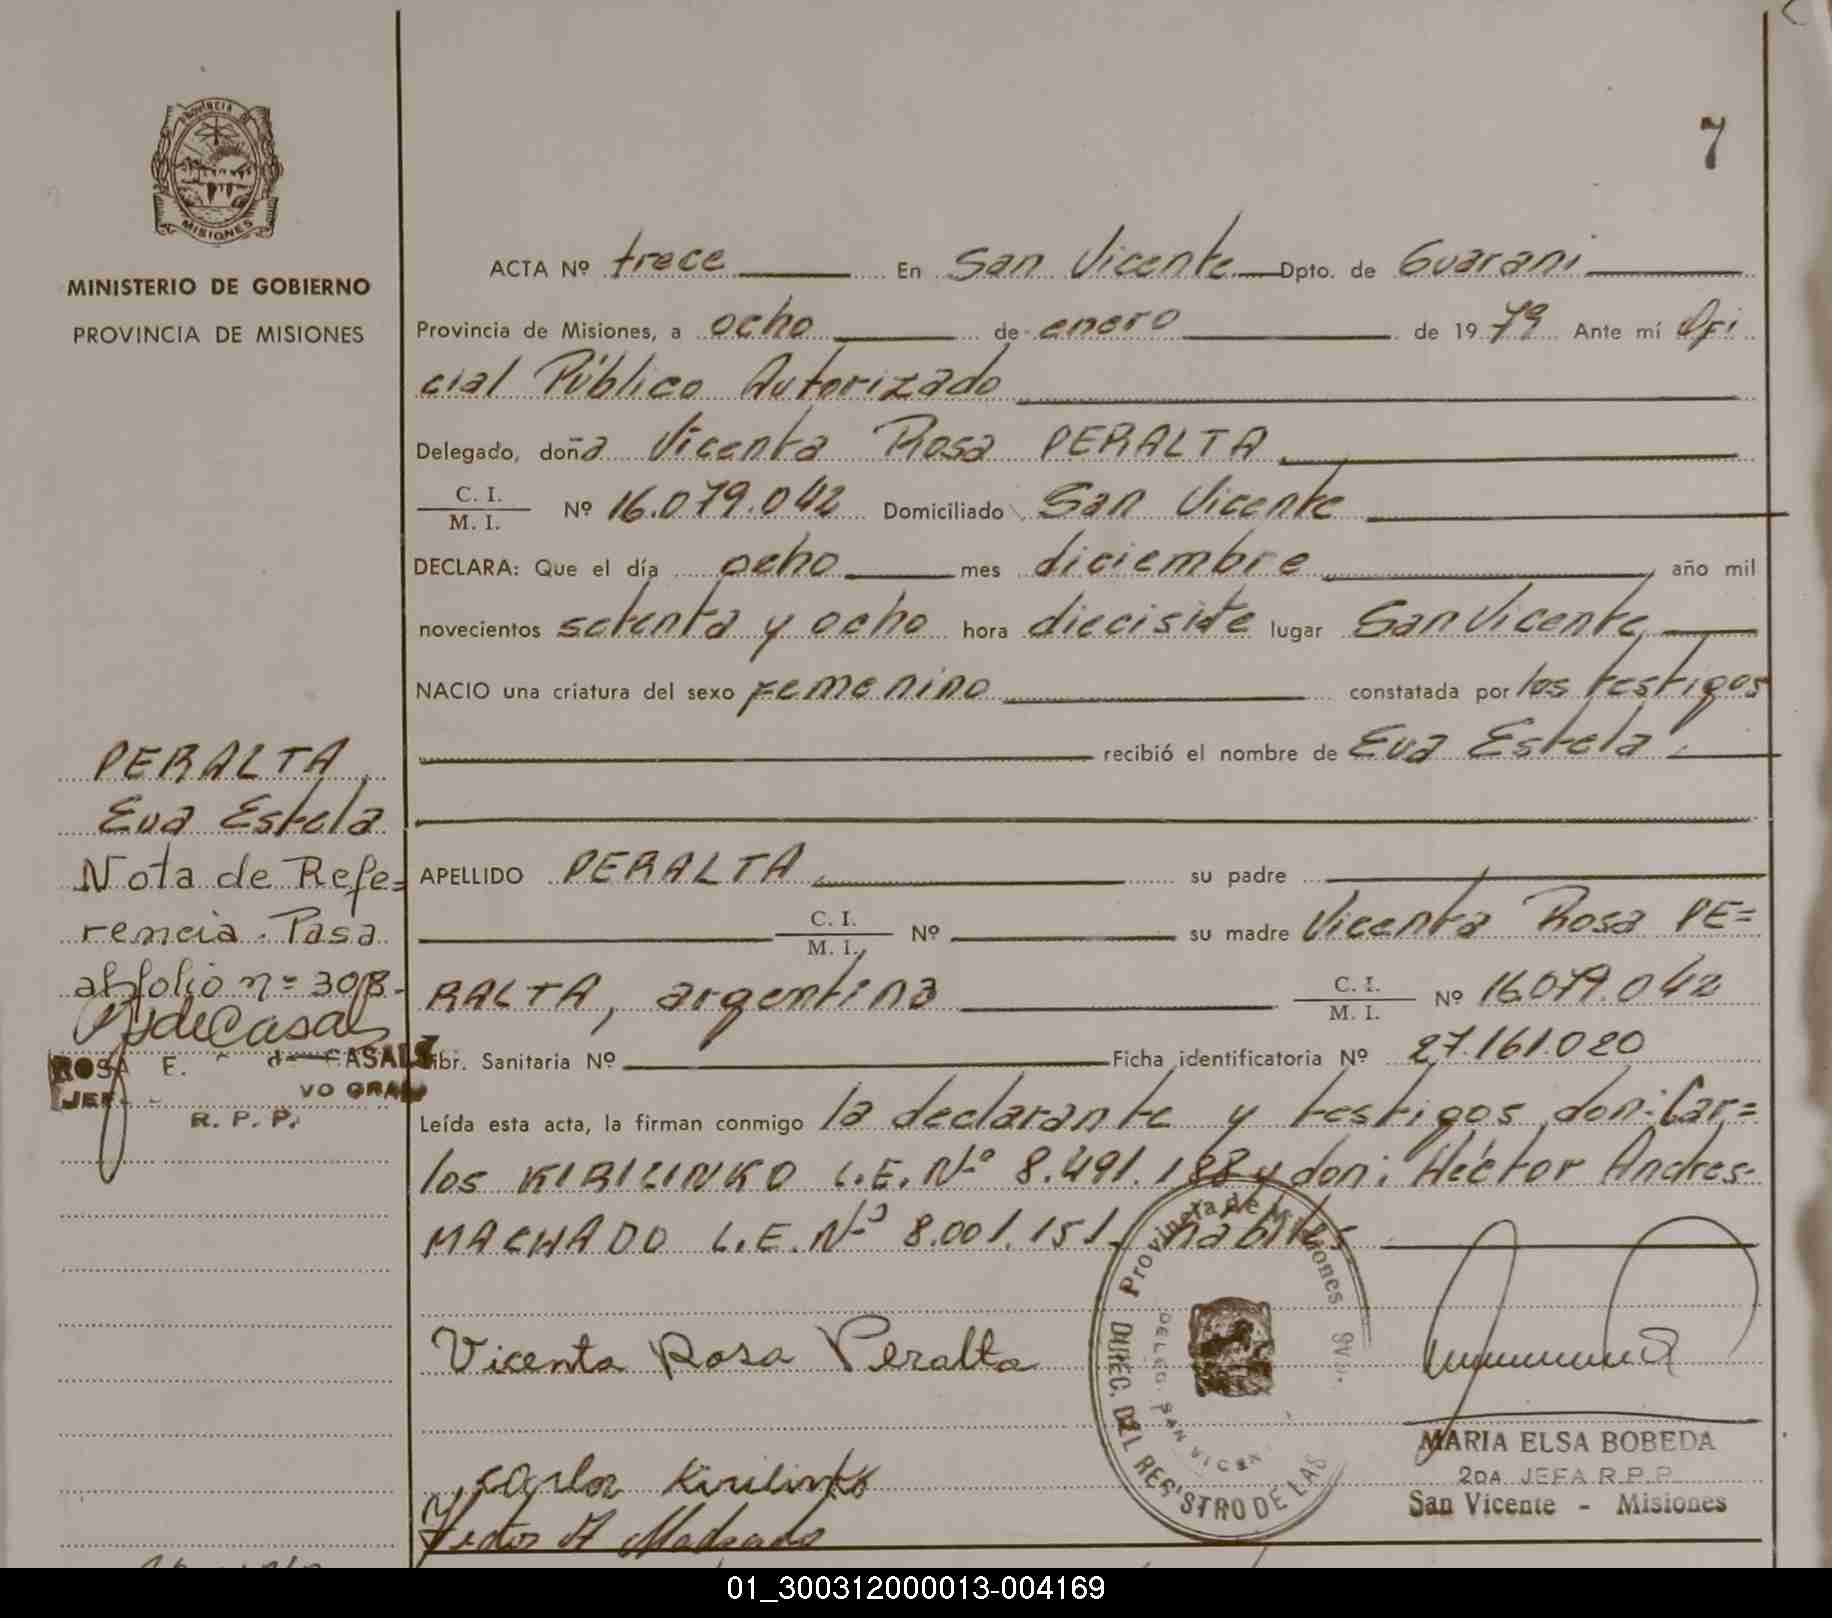 7
Provincia de
MISIONES
MINISTERIO DE GOBIERNO
PROVINCIA DE MISIONES
ACTA Nº trece En San Vicente Dpto. de Guarani
Provincia de Misiones, a ocho de enero de 19 79 Ante mí Ofi
cial Público Autorizado
Delegado, doña Vicenta Rosa PERALTA
C. I.
M. I. Nº 16.079.042 Domiciliado San Vicente
DECLARA: Que el día ocho mes diciembre año mil
novecientos setenta y ocho hora diecisiete lugar San Vicente
NACIO una criatura del sexo Femenino constatada por los testigos
recibió el nombre de Eva Estela
APELLIDO PERALTA su padre
C. I.
M. I. Nº su madre Vicenta Rosa PE=
RALTA, argentina C. I.
M. I. Nº 16.079.042
Libr. Sanitaria Nº Ficha identificatoria Nº 27.161.020
Leída esta acta, la firman conmigo la declarante y testigos don: Car=
los KIRILINKO L.E. Nº 8.491.188 y don: Héctor Andres
MACHADO L.E. Nº 8.001.151. hábiles
PERALTA
Eva Estela
Nota de Refe=
rencia. Pasa
al folio nº 308.
ROSA E. de CASALS
JEF VO GRAL
R. P. P.
Vicenta Rosa Peralta
Carlos Kirilinko
Hector A Machado
Provincia de Misiones
DIREC. DEL REGISTRO DE LAS
DELEG. SAN VICEN
MARIA ELSA BOBEDA
2DA JEFA R.P.P.
San Vicente - Misiones
01_300312000013-004169